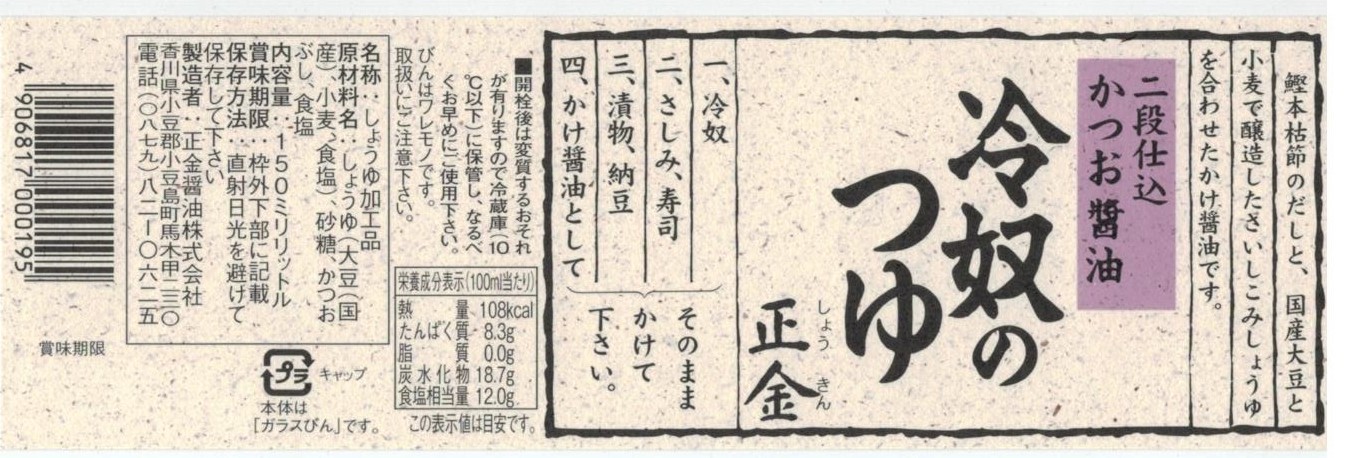 鰹本枯節のだしと、国産大豆と
小麦で醸造したさいしこみしょうゆ
を合わせたかけ醤油です。
二段仕込
かつお醤油
冷奴の
つゆ
しょうきん
正金
一、冷奴
二、さしみ、寿司
三、漬物、納豆
四、かけ醤油として
そのまま
かけて
下さい。
■開栓後は変質するおそれ
が有りますので冷蔵庫(10
℃以下)に保管し、なるべ
くお早めにご使用下さい。
びんはワレモノです。
取扱いにご注意下さい。
栄養成分表示(100ml当たり)
熱量 108kcal
たんぱく質 8.3g
脂質 0.0g
炭水化物 18.7g
食塩相当量 12.0g
この表示値は目安です。
名称:しょうゆ加工品
原材料名:しょうゆ(大豆(国
産)、小麦、食塩)、砂糖、かつお
ぶし、食塩
内容量:150ミリリットル
賞味期限:枠外下部に記載
保存方法:直射日光を避けて
保存して下さい
製造者:正金醤油株式会社
香川県小豆郡小豆島町馬木甲二三〇
電話(〇八七九)八二ー〇六二五
プラ キャップ
本体は
「ガラスびん」です。
賞味期限
4 906817 000195